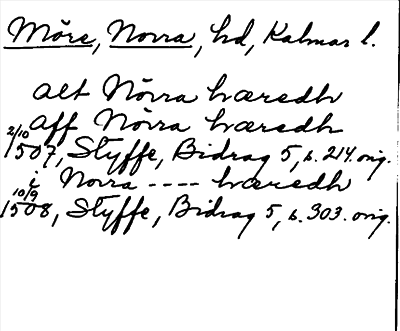 Möre, Norra, hd, Kalmar l.
alt Nörra hæredh
aff Nörra hæredh
2/10 1507, Styffe, Bidrag 5, s. 214. orig.
i Norra ---- hæredh
10/9 1508, Styffe, Bidrag 5, s. 303. orig.